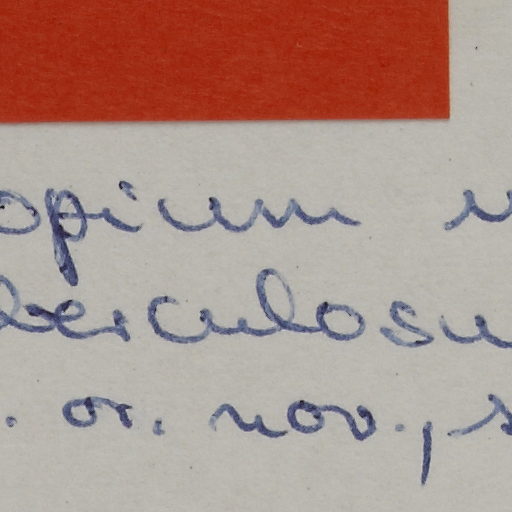 opium
berculosu
. or. nov., s